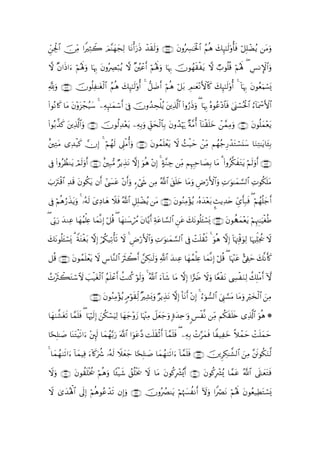 وَمَن يُضْلِلْ فَأُو۟لَٰٓئِكَ هُمُ ٱلْخَٰسِرُونَ ﴿١٧٨﴾ وَلَقَدْ ذَرَأْنَا لِجَهَنَّمَ كَثِيرًا مِّنَ ٱلْجِنِّ
وَٱلْإِنسِ ۖ لَهُمْ قُلُوبٌ لَّا يَفْقَهُونَ بِهَا وَلَهُمْ أَعْيُنٌ لَّا يُبْصِرُونَ بِهَا وَلَهُمْ ءَاذَانٌ لَّا
يَسْمَعُونَ بِهَآ ۚ أُو۟لَٰٓئِكَ كَٱلْأَنْعَٰمِ بَلْ هُمْ أَضَلُّ ۚ أُو۟لَٰٓئِكَ هُمُ ٱلْغَٰفِلُونَ ﴿١٧٩﴾ وَلِلَّهِ
ٱلْأَسْمَآءُ ٱلْحُسْنَىٰ فَٱدْعُوهُ بِهَا ۖ وَذَرُوا۟ ٱلَّذِينَ يُلْحِدُونَ فِىٓ أَسْمَٰٓئِهِۦ ۚ سَيُجْزَوْنَ مَا كَانُوا۟
يَعْمَلُونَ ﴿١٨٠﴾ وَمِمَّنْ خَلَقْنَآ أُمَّةٌ يَهْدُونَ بِٱلْحَقِّ وَبِهِۦ يَعْدِلُونَ ﴿١٨١﴾ وَٱلَّذِينَ كَذَّبُوا۟
بِـَٔايَٰتِنَا سَنَسْتَدْرِجُهُم مِّنْ حَيْثُ لَا يَعْلَمُونَ ﴿١٨٢﴾ وَأُمْلِى لَهُمْ ۚ إِنَّ كَيْدِى مَتِينٌ
﴿١٨٣﴾ أَوَلَمْ يَتَفَكَّرُوا۟ ۗ مَا بِصَاحِبِهِم مِّن جِنَّةٍ ۚ إِنْ هُوَ إِلَّا نَذِيرٌ مُّبِينٌ ﴿١٨٤﴾ أَوَلَمْ يَنظُرُوا۟ فِى
مَلَكُوتِ ٱلسَّمَٰوَٰتِ وَٱلْأَرْضِ وَمَا خَلَقَ ٱللَّهُ مِن شَىْءٍ وَأَنْ عَسَىٰٓ أَن يَكُونَ قَدِ ٱقْتَرَبَ
أَجَلُهُمْ ۖ فَبِأَىِّ حَدِيثٍۭ بَعْدَهُۥ يُؤْمِنُونَ ﴿١٨٥﴾ مَن يُضْلِلِ ٱللَّهُ فَلَا هَادِىَ لَهُۥ ۚ وَيَذَرُهُمْ فِى
طُغْيَٰنِهِمْ يَعْمَهُونَ ﴿١٨٦﴾ يَسْـَٔلُونَكَ عَنِ ٱلسَّاعَةِ أَيَّانَ مُرْسَىٰهَا ۖ قُلْ إِنَّمَا عِلْمُهَا عِندَ رَبِّى ۖ
لَا يُجَلِّيهَا لِوَقْتِهَآ إِلَّا هُوَ ۚ ثَقُلَتْ فِى ٱلسَّمَٰوَٰتِ وَٱلْأَرْضِ ۚ لَا تَأْتِيكُمْ إِلَّا بَغْتَةً ۗ يَسْـَٔلُونَكَ
كَأَنَّكَ حَفِىٌّ عَنْهَا ۖ قُلْ إِنَّمَا عِلْمُهَا عِندَ ٱللَّهِ وَلَٰكِنَّ أَكْثَرَ ٱلنَّاسِ لَا يَعْلَمُونَ ﴿١٨٧﴾ قُل
لَّآ أَمْلِكُ لِنَفْسِى نَفْعًا وَلَا ضَرًّا إِلَّا مَا شَآءَ ٱللَّهُ ۚ وَلَوْ كُنتُ أَعْلَمُ ٱلْغَيْبَ لَٱسْتَكْثَرْتُ
مِنَ ٱلْخَيْرِ وَمَا مَسَّنِىَ ٱلسُّوٓءُ ۚ إِنْ أَنَا۠ إِلَّا نَذِيرٌ وَبَشِيرٌ لِّقَوْمٍ يُؤْمِنُونَ ﴿١٨٨﴾
۞ هُوَ ٱلَّذِى خَلَقَكُم مِّن نَّفْسٍ وَٰحِدَةٍ وَجَعَلَ مِنْهَا زَوْجَهَا لِيَسْكُنَ إِلَيْهَا ۖ فَلَمَّا تَغَشَّىٰهَا
حَمَلَتْ حَمْلًا خَفِيفًا فَمَرَّتْ بِهِۦ ۖ فَلَمَّآ أَثْقَلَت دَّعَوَا ٱللَّهَ رَبَّهُمَا لَئِنْ ءَاتَيْتَنَا صَٰلِحًا
لَّنَكُونَنَّ مِنَ ٱلشَّٰكِرِينَ ﴿١٨٩﴾ فَلَمَّآ ءَاتَىٰهُمَا صَٰلِحًا جَعَلَا لَهُۥ شُرَكَآءَ فِيمَآ ءَاتَىٰهُمَا ۚ
فَتَعَٰلَى ٱللَّهُ عَمَّا يُشْرِكُونَ ﴿١٩٠﴾ أَيُشْرِكُونَ مَا لَا يَخْلُقُ شَيْـًٔا وَهُمْ يُخْلَقُونَ ﴿١٩١﴾ وَلَا
يَسْتَطِيعُونَ لَهُمْ نَصْرًا وَلَآ أَنفُسَهُمْ يَنصُرُونَ ﴿١٩٢﴾ وَإِن تَدْعُوهُمْ إِلَى ٱلْهُدَىٰ لَا